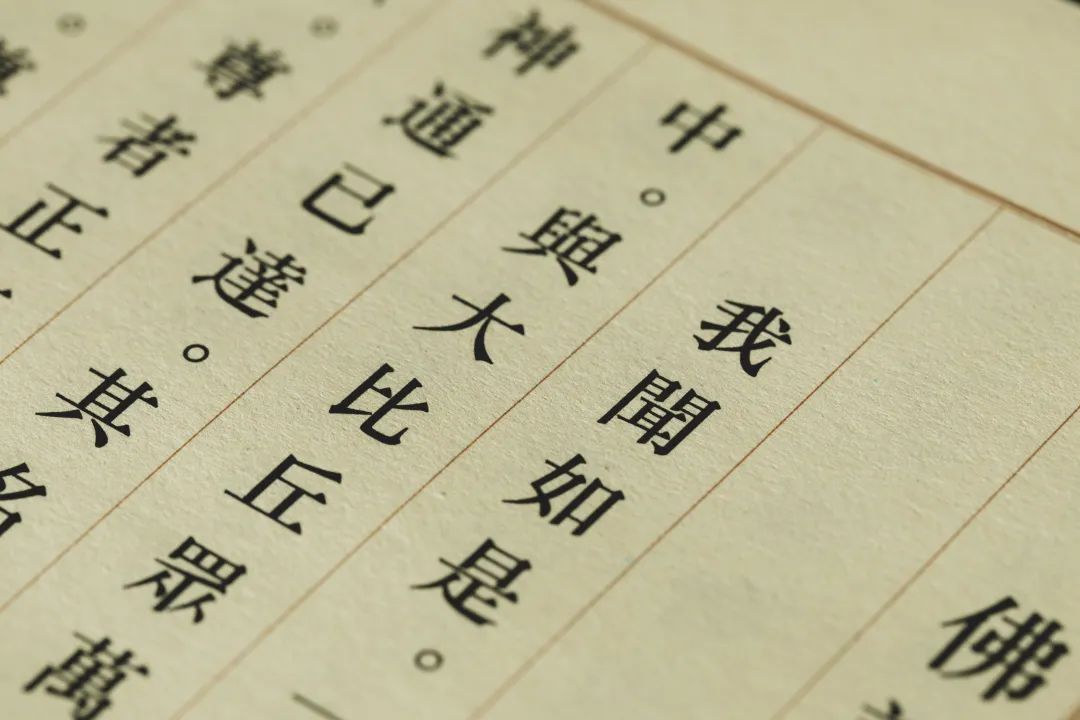 佛
我聞如是。
中。與大比丘眾萬
神通已達。其名
尊者正